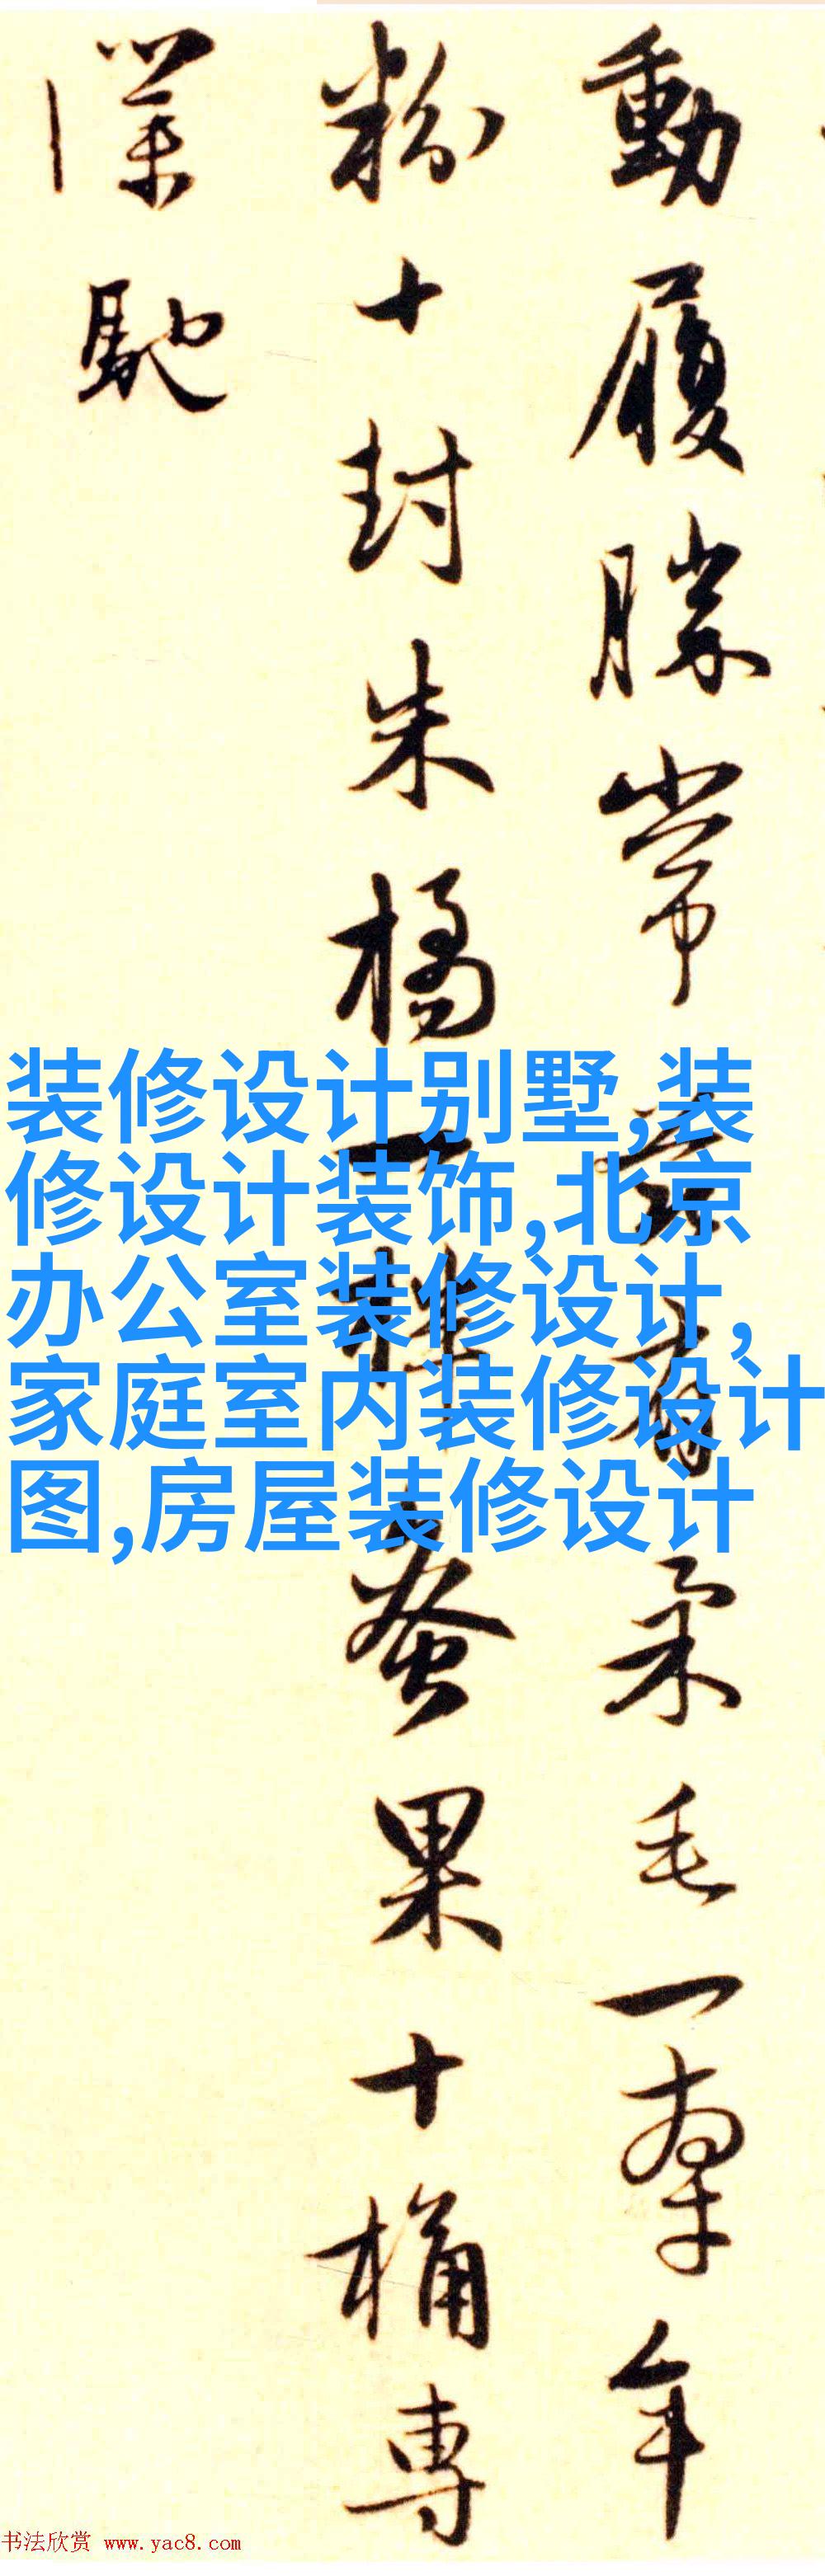 動履勝常茲有柔毛一牽年
粉十封朱橘一蚕果十桶專
僕馳
装修设计别墅,装
修设计装饰,北京
办公室装修设计,
家庭室内装修设计
图,房屋装修设计
书法欣赏 www.yac8.com